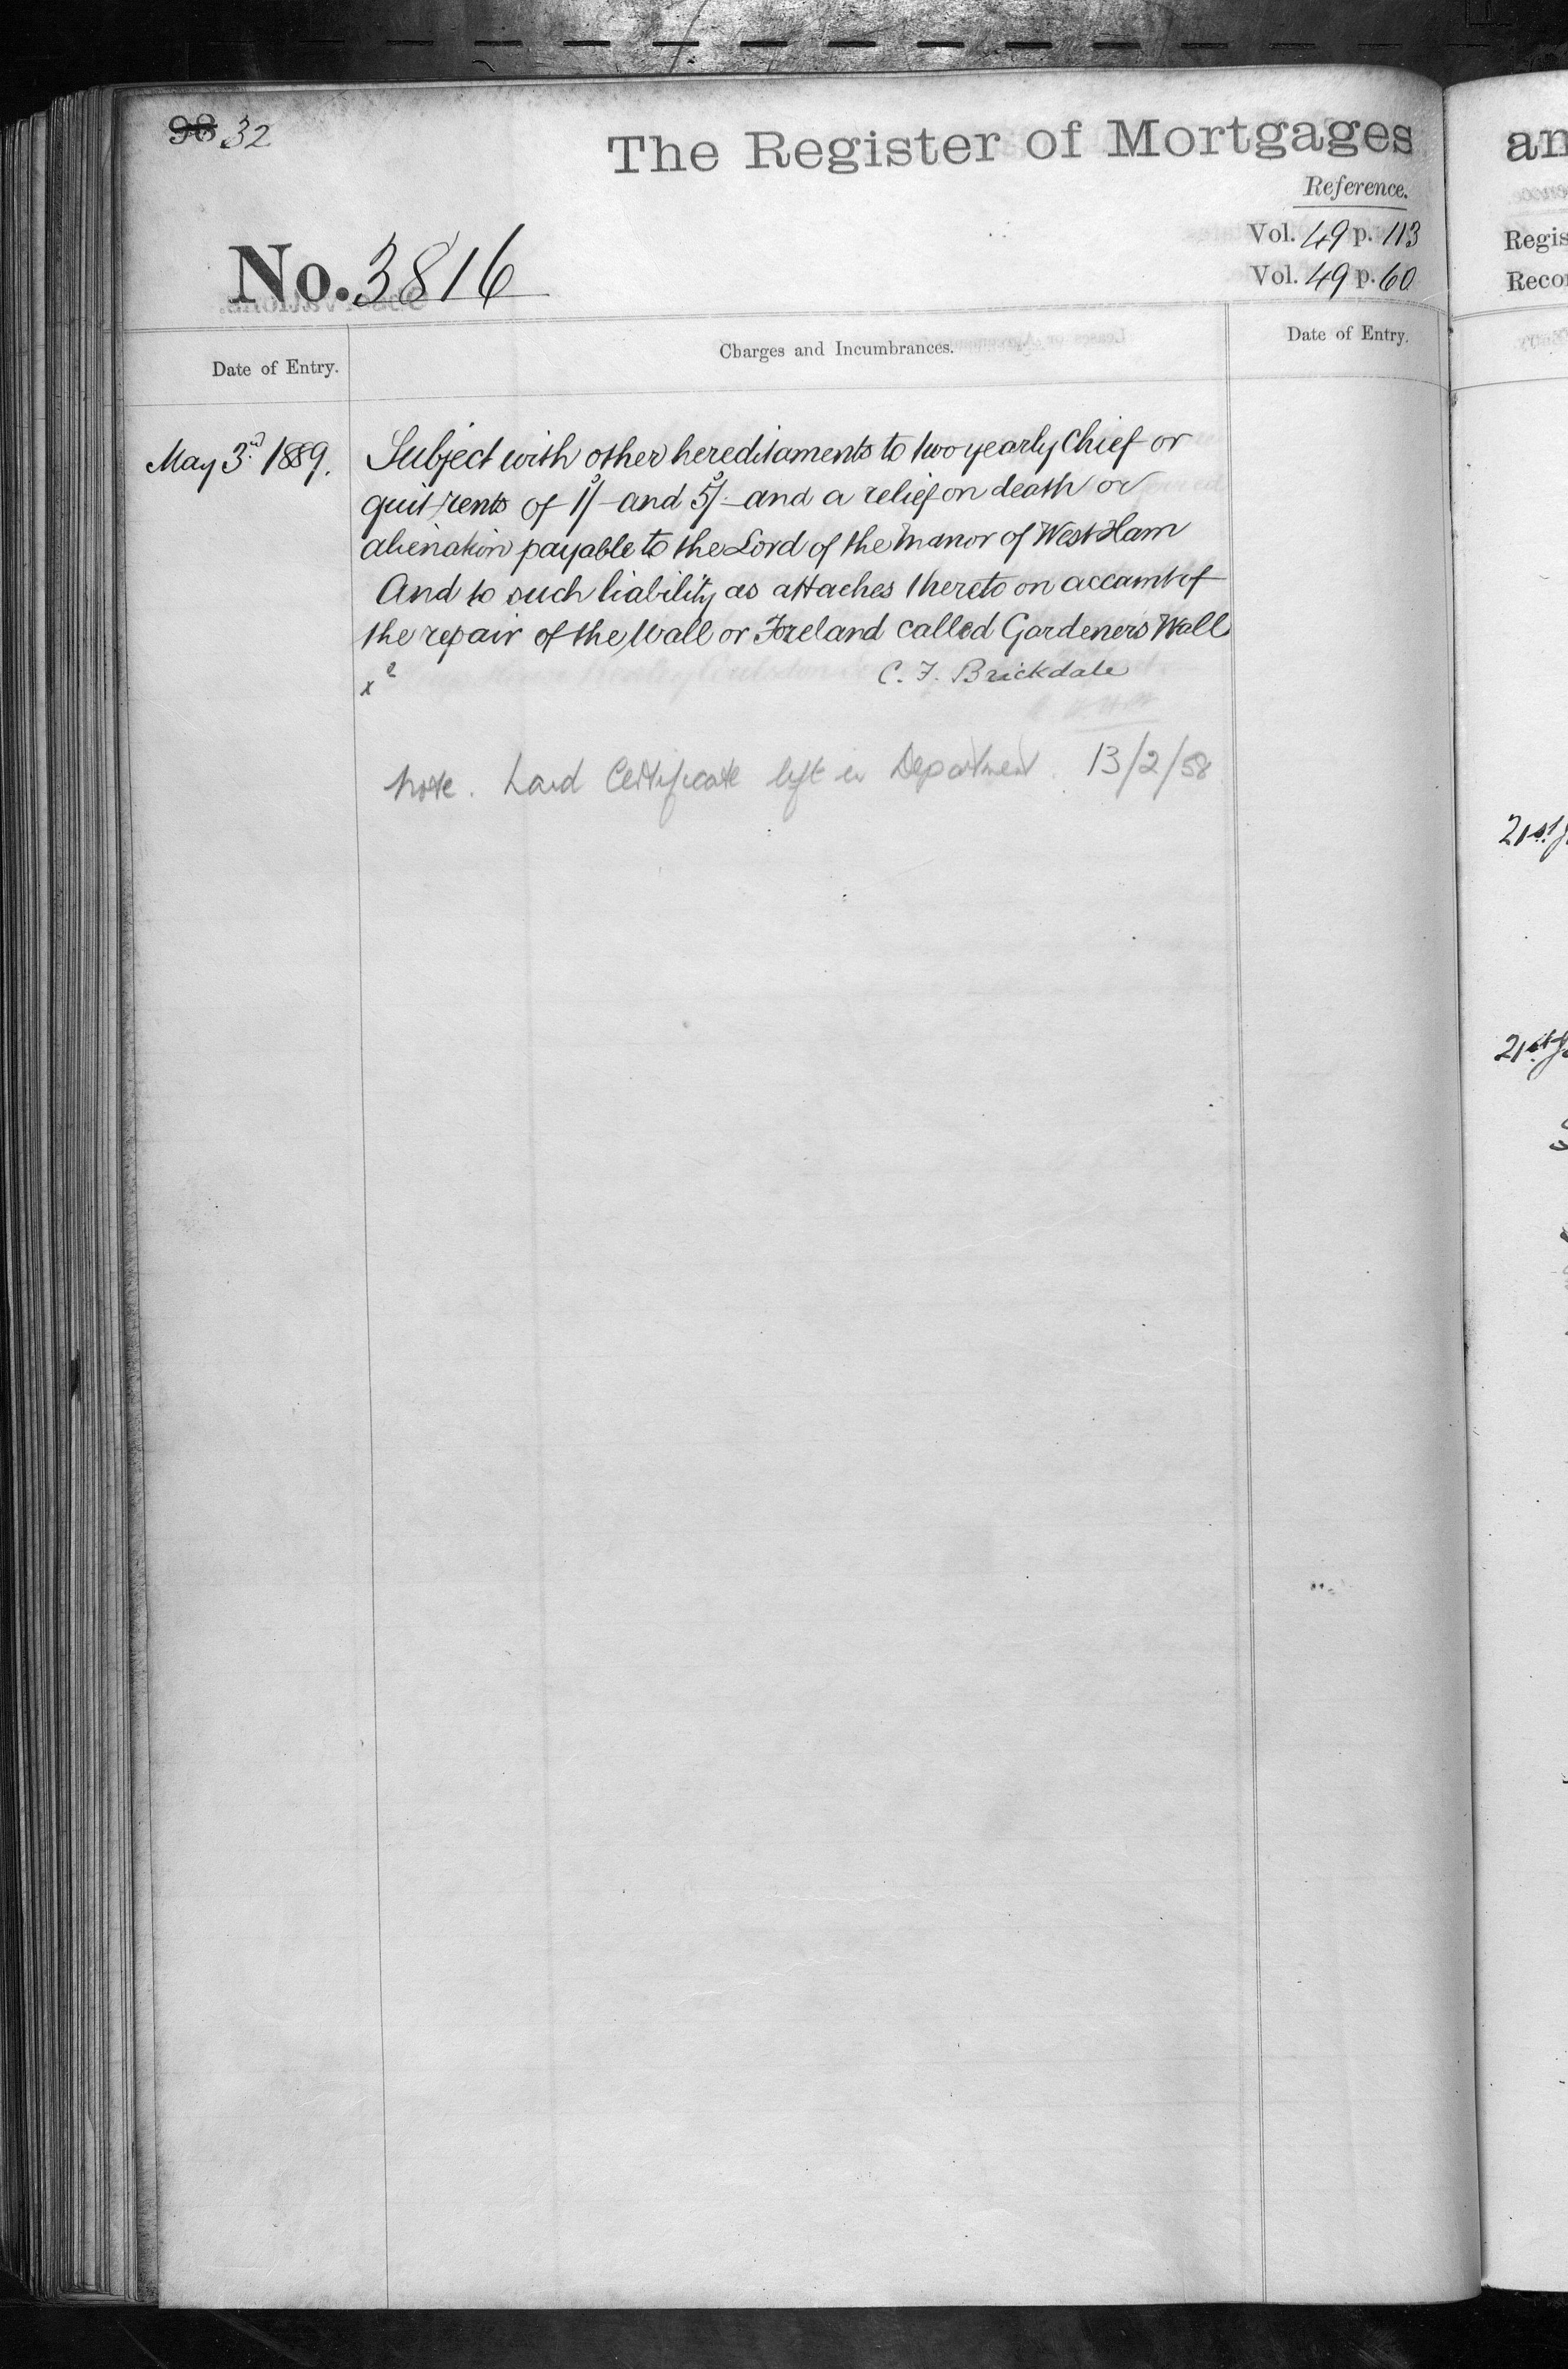 98 32
The Register of Mortgages
Reference.
Vol. 49 p. 113
Vol. 49 p. 60
No. 3816
Date of Entry.
Charges and Incumbrances.
Date of Entry.
May 3rd 1889.
Subject with other hereditaments to two yearly Chief or
quit rents of 1s/- and 5s/- and a relief on death or
alienation payable to the Lord of the Manor of West Ham
And to such liability as attaches thereto on account of
the repair of the Wall or Foreland called Gardeners Wall
C. F. Brickdale
Note. Land Certificate left in Department. 13/2/58
an
Regis
Recor
21st J
21st J